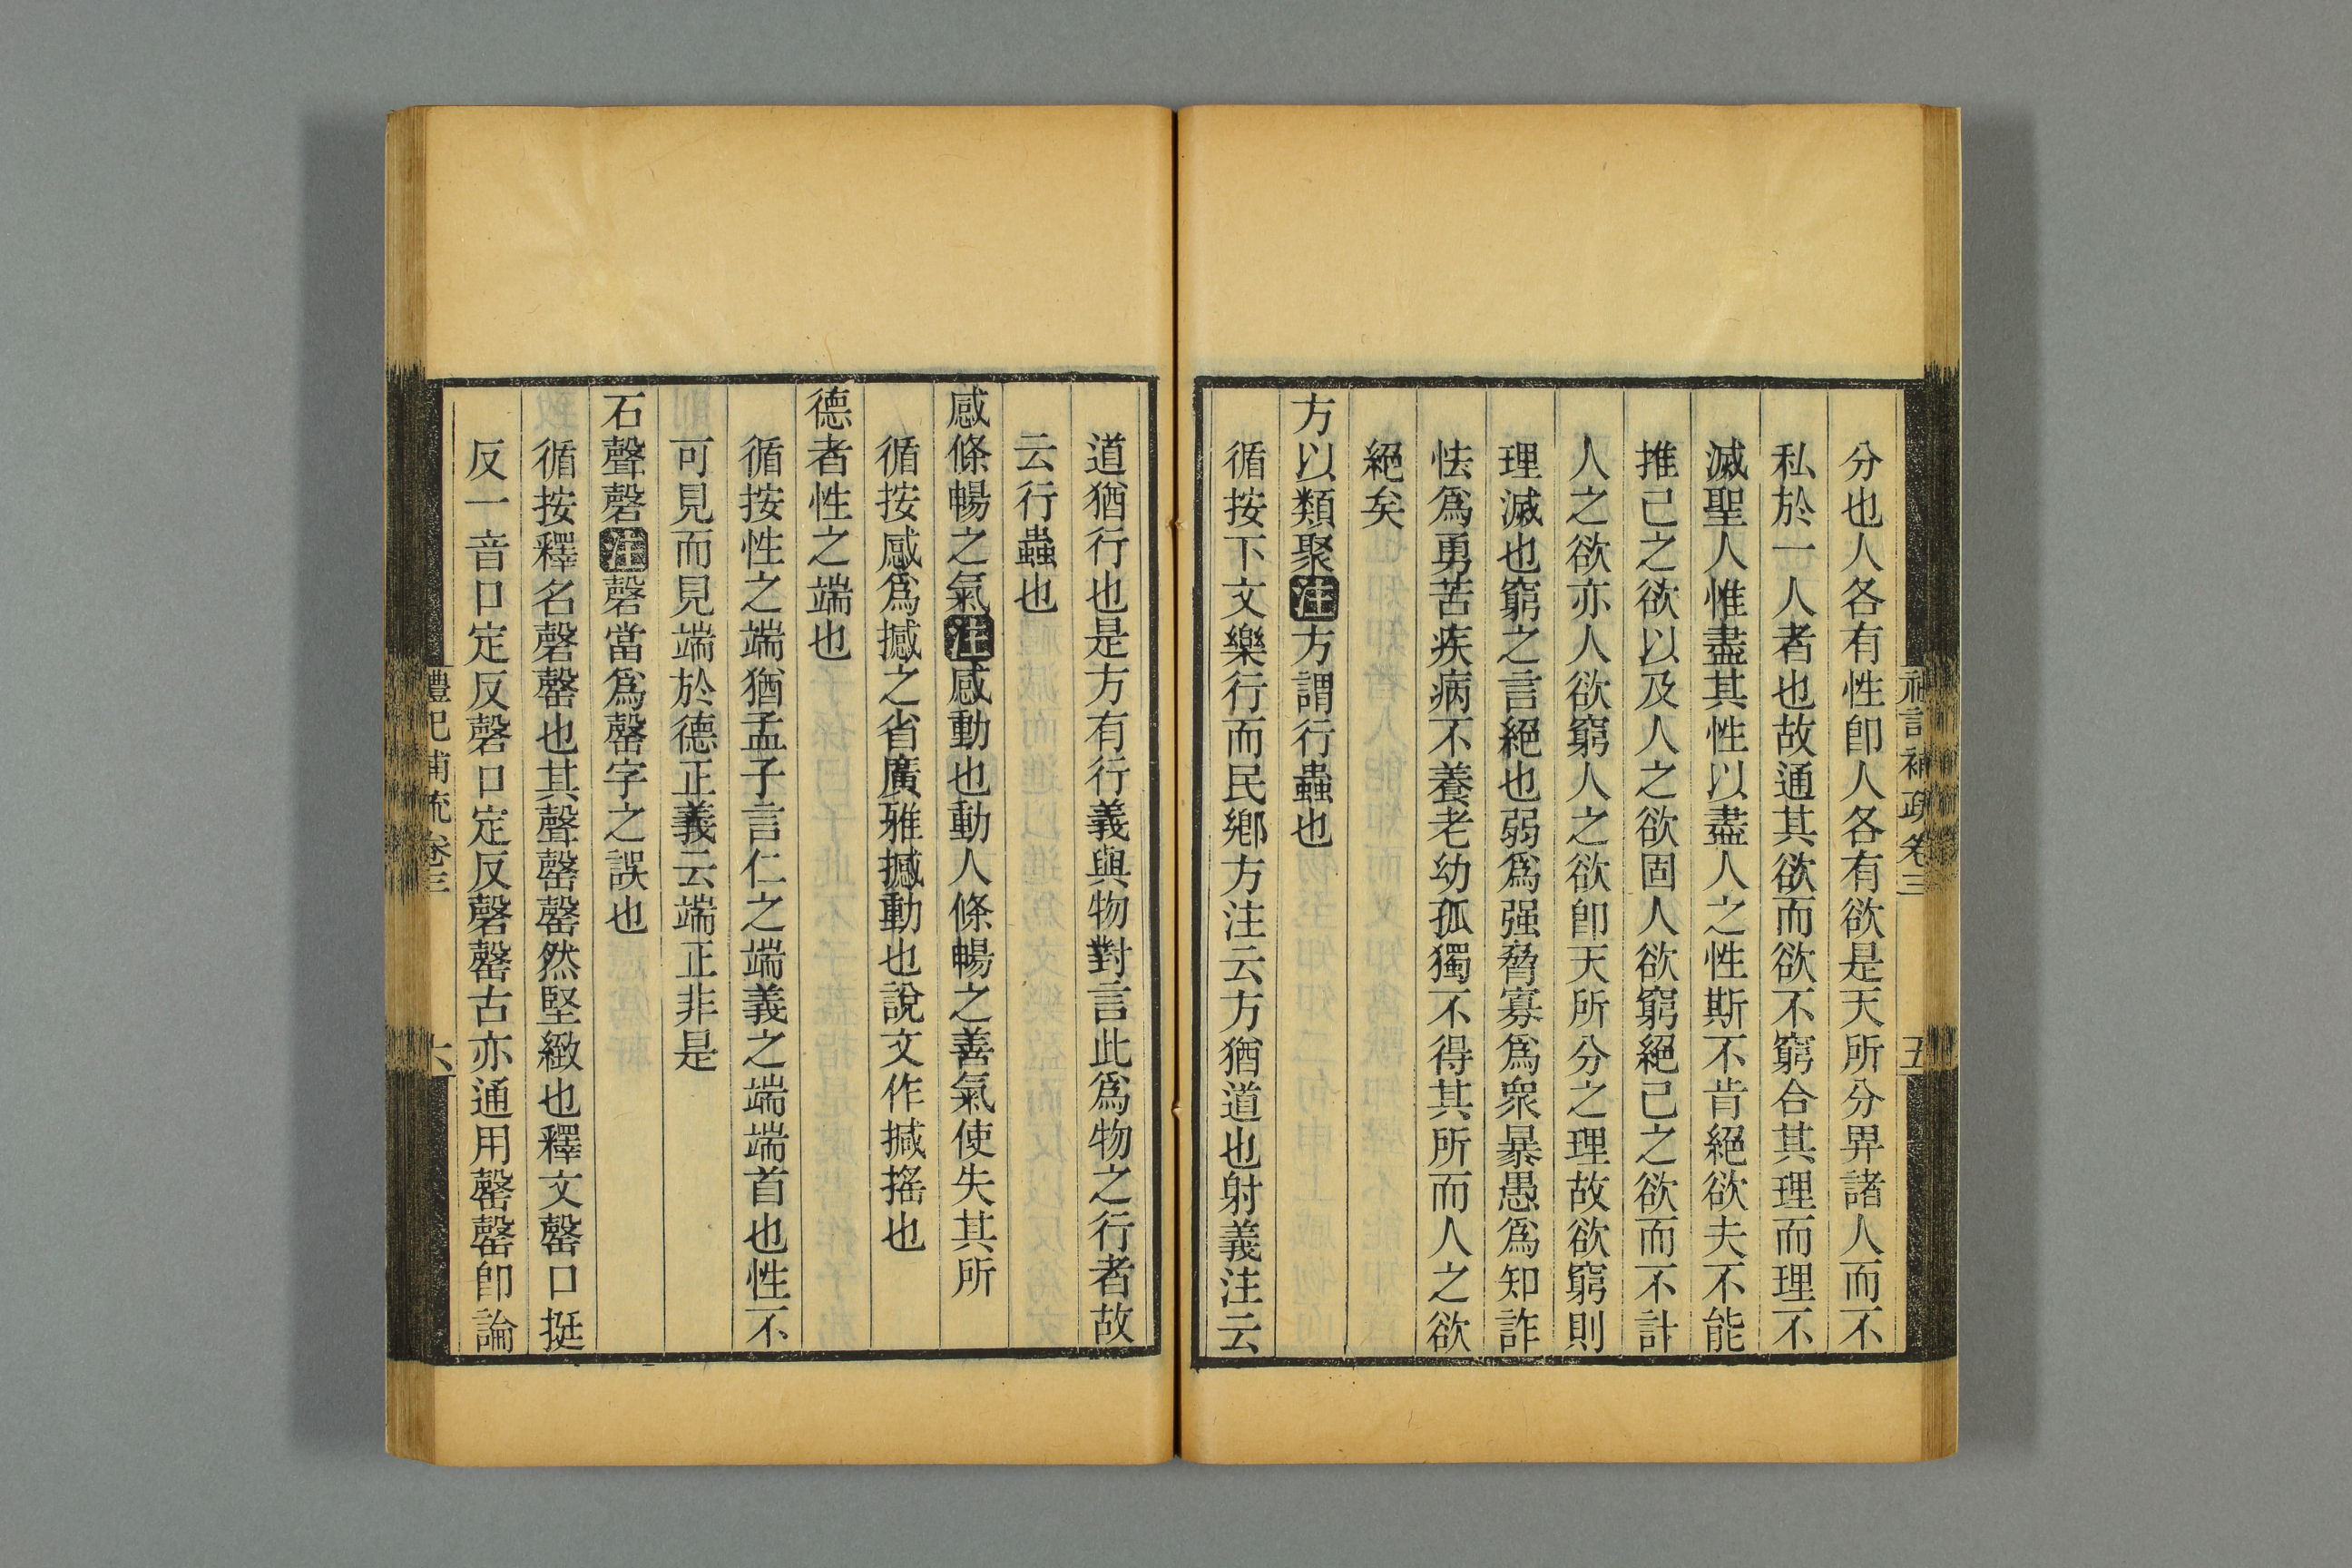 分也人各有性卽人各有欲是天所分畀諸人而不
私於一人者也故通其欲而欲不窮合其理而理不
滅聖人惟盡其性以盡人之性斯不肯絕欲夫不能
推己之欲以及人之欲固人欲窮絕己之欲而不計
人之欲亦人欲窮人之欲卽天所分之理故欲窮則
理滅也窮之言絕也弱爲强脅寡爲衆暴愚爲知詐
怯爲勇苦疾病不養老幼孤獨不得其所而人之欲
絕矣
方以類聚注方謂行蟲也
循按下文樂行而民鄉方注云方猶道也射義注云
禮記補疏卷三
五
道猶行也是方有行義與物對言此爲物之行者故
云行蟲也
感條暢之氣注感動也動人條暢之善氣使失其所
循按感爲撼之省廣雅撼動也說文作撼搖也
德者性之端也
循按性之端猶孟子言仁之端義之端端首也性不
可見而見端於德正義云端正非是
石聲磬注磬當爲罄字之誤也
循按釋名磬罄也其聲罄罄然堅緻也釋文罄口挺
反一音口定反磬口定反磬罄古亦通用罄罄卽論
禮記補疏卷三
六